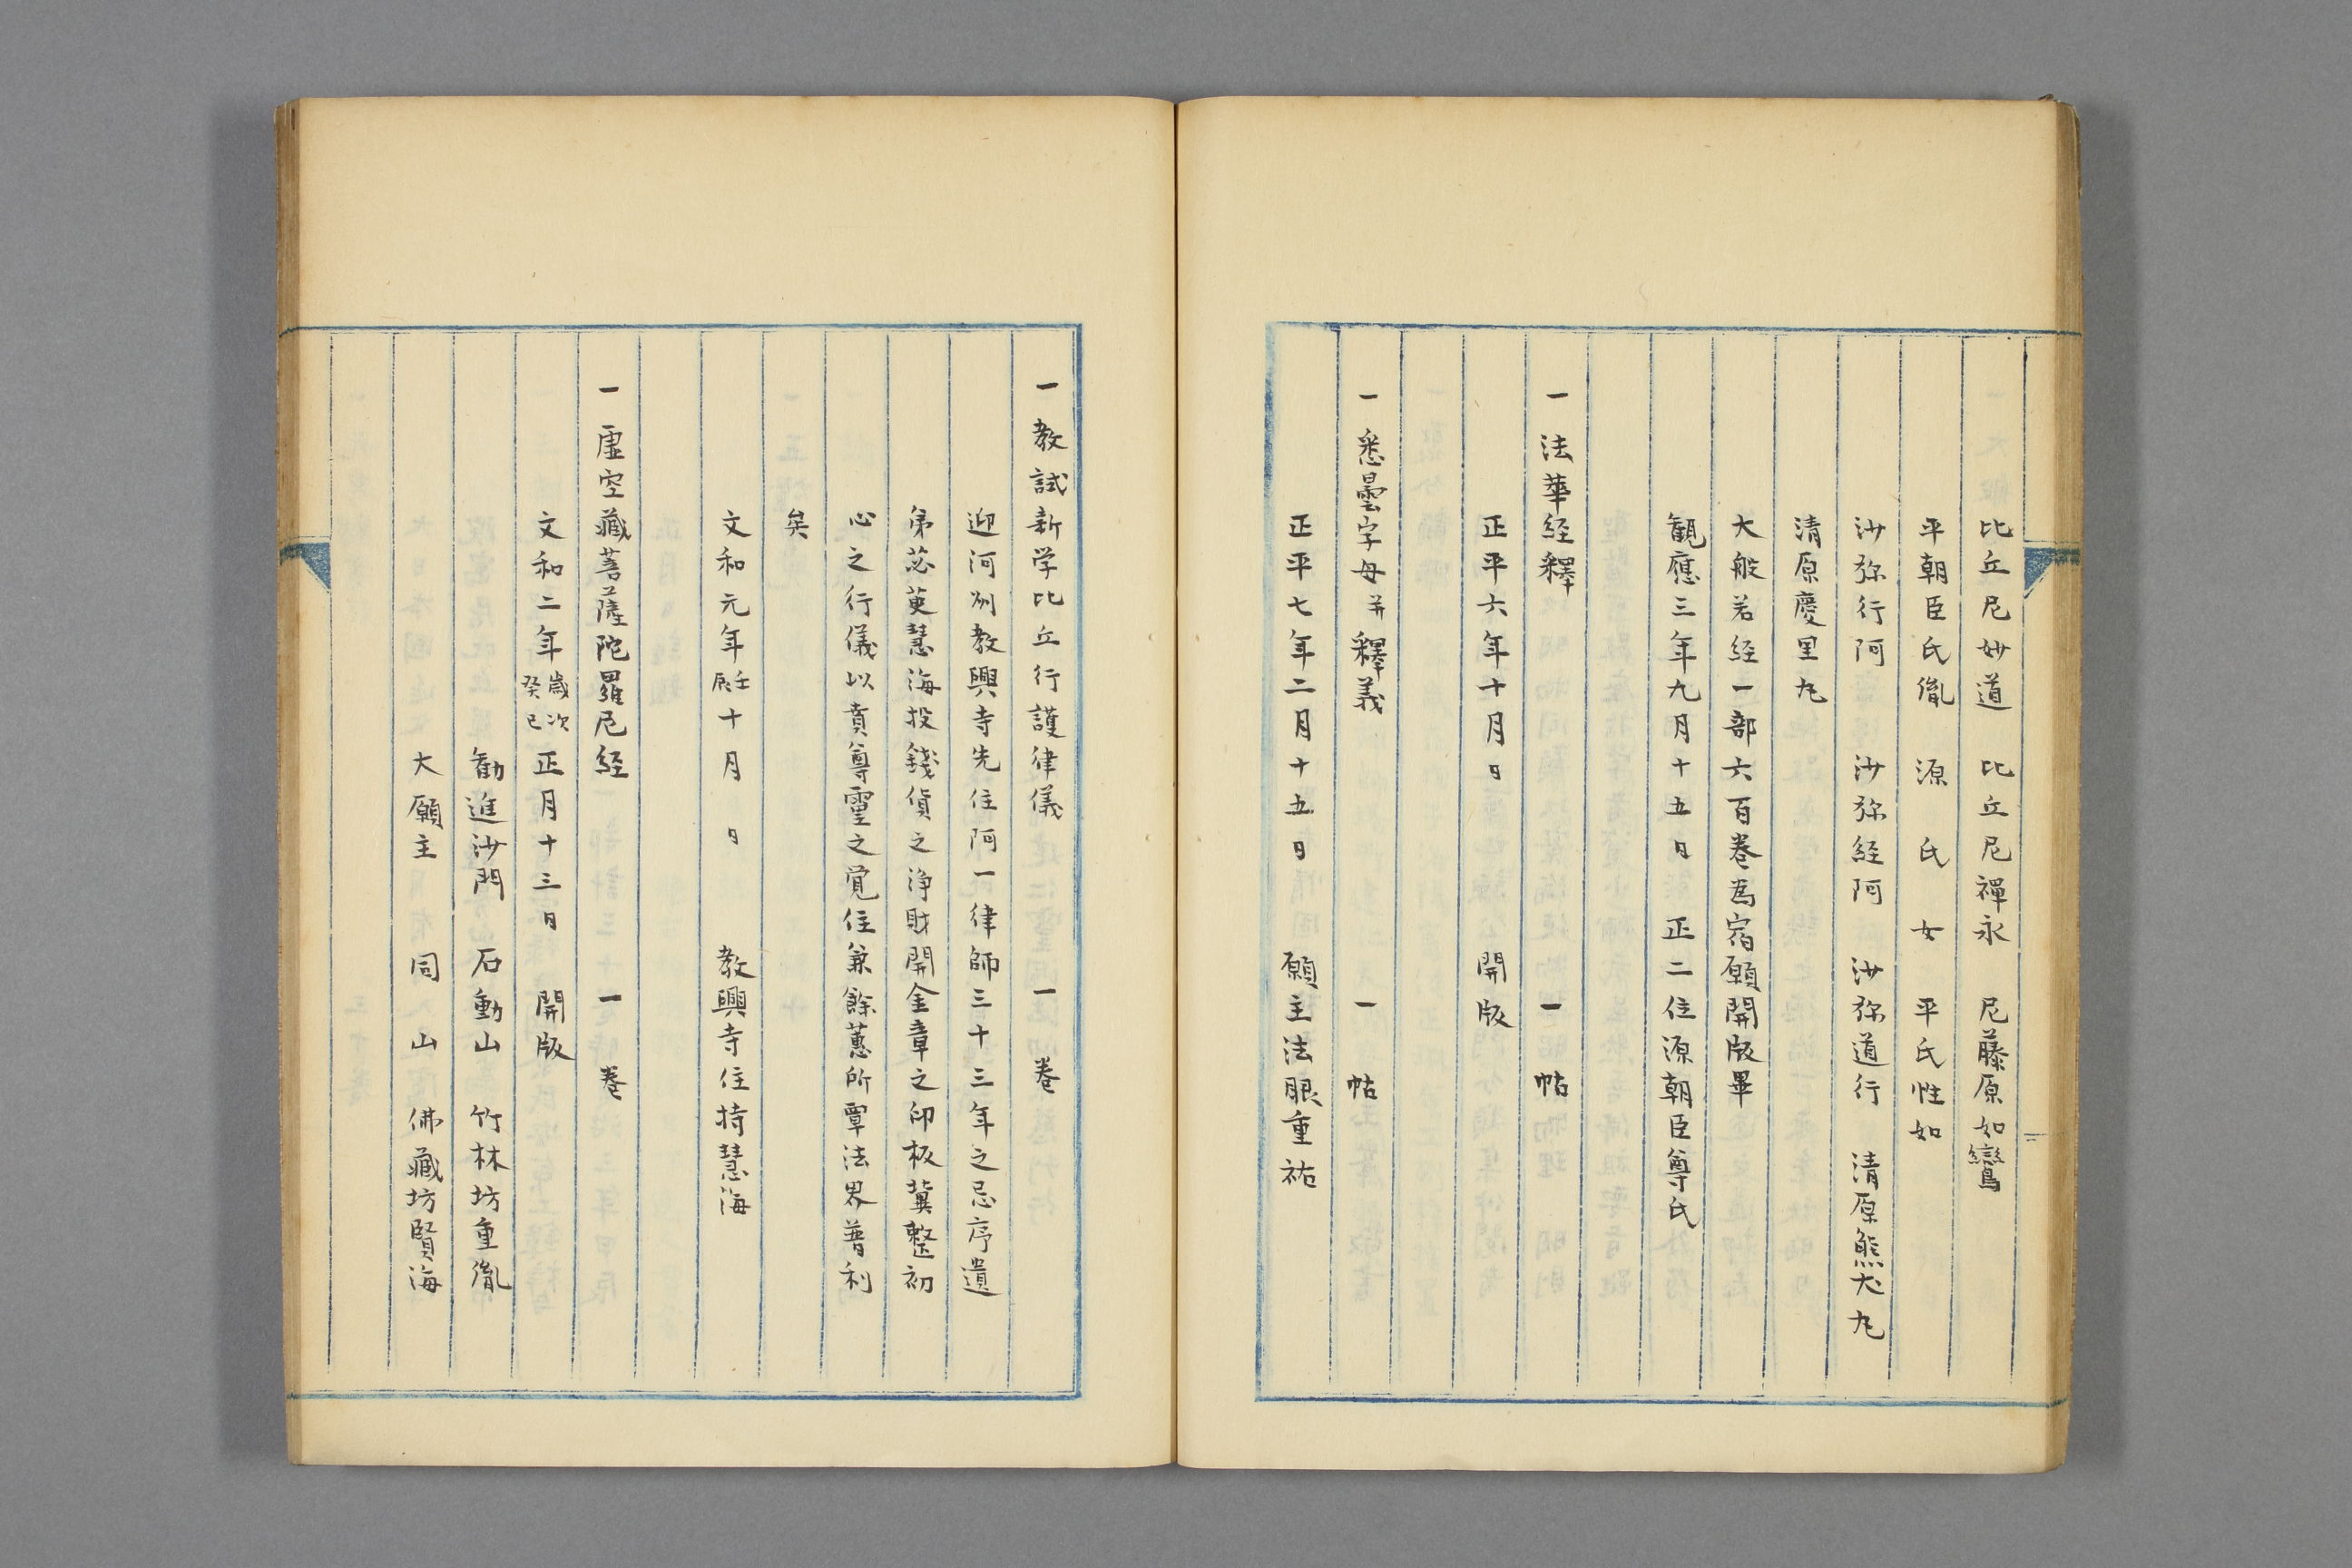 比丘尼妙道　比丘尼禪永　尼藤原如鸞
平朝臣氏胤　源　氏　女　平氏性如
沙弥行阿　沙弥経阿　沙弥道行　清原熊犬丸
清原慶里丸
大般若経一部六百巻為宿願開版畢
観應三年九月十五日　正二位源朝臣尊氏
一　法華経釋　一　帖
正平六年十月　日　開版
一　悉曇字母并釋義　一　帖
正平七年二月十五日　願主法眼重祐
一　教試新学比丘行護律儀　一　巻
迎河州教興寺先住阿一律師三十三年之忌序遺
弟苾蒭慧海投錢貨之浄財開金章之印板冀整初
心之行儀以賁尊霊之覚位兼餘薫所覃法界普利
矣
文和元年壬辰十月　日　教興寺住持慧海
一　虚空藏菩薩陀羅尼経　一　巻
文和二年歳次癸巳正月十三日　開版
勧進沙門　石動山　竹林坊重胤
大願主　同　山　佛藏坊賢海